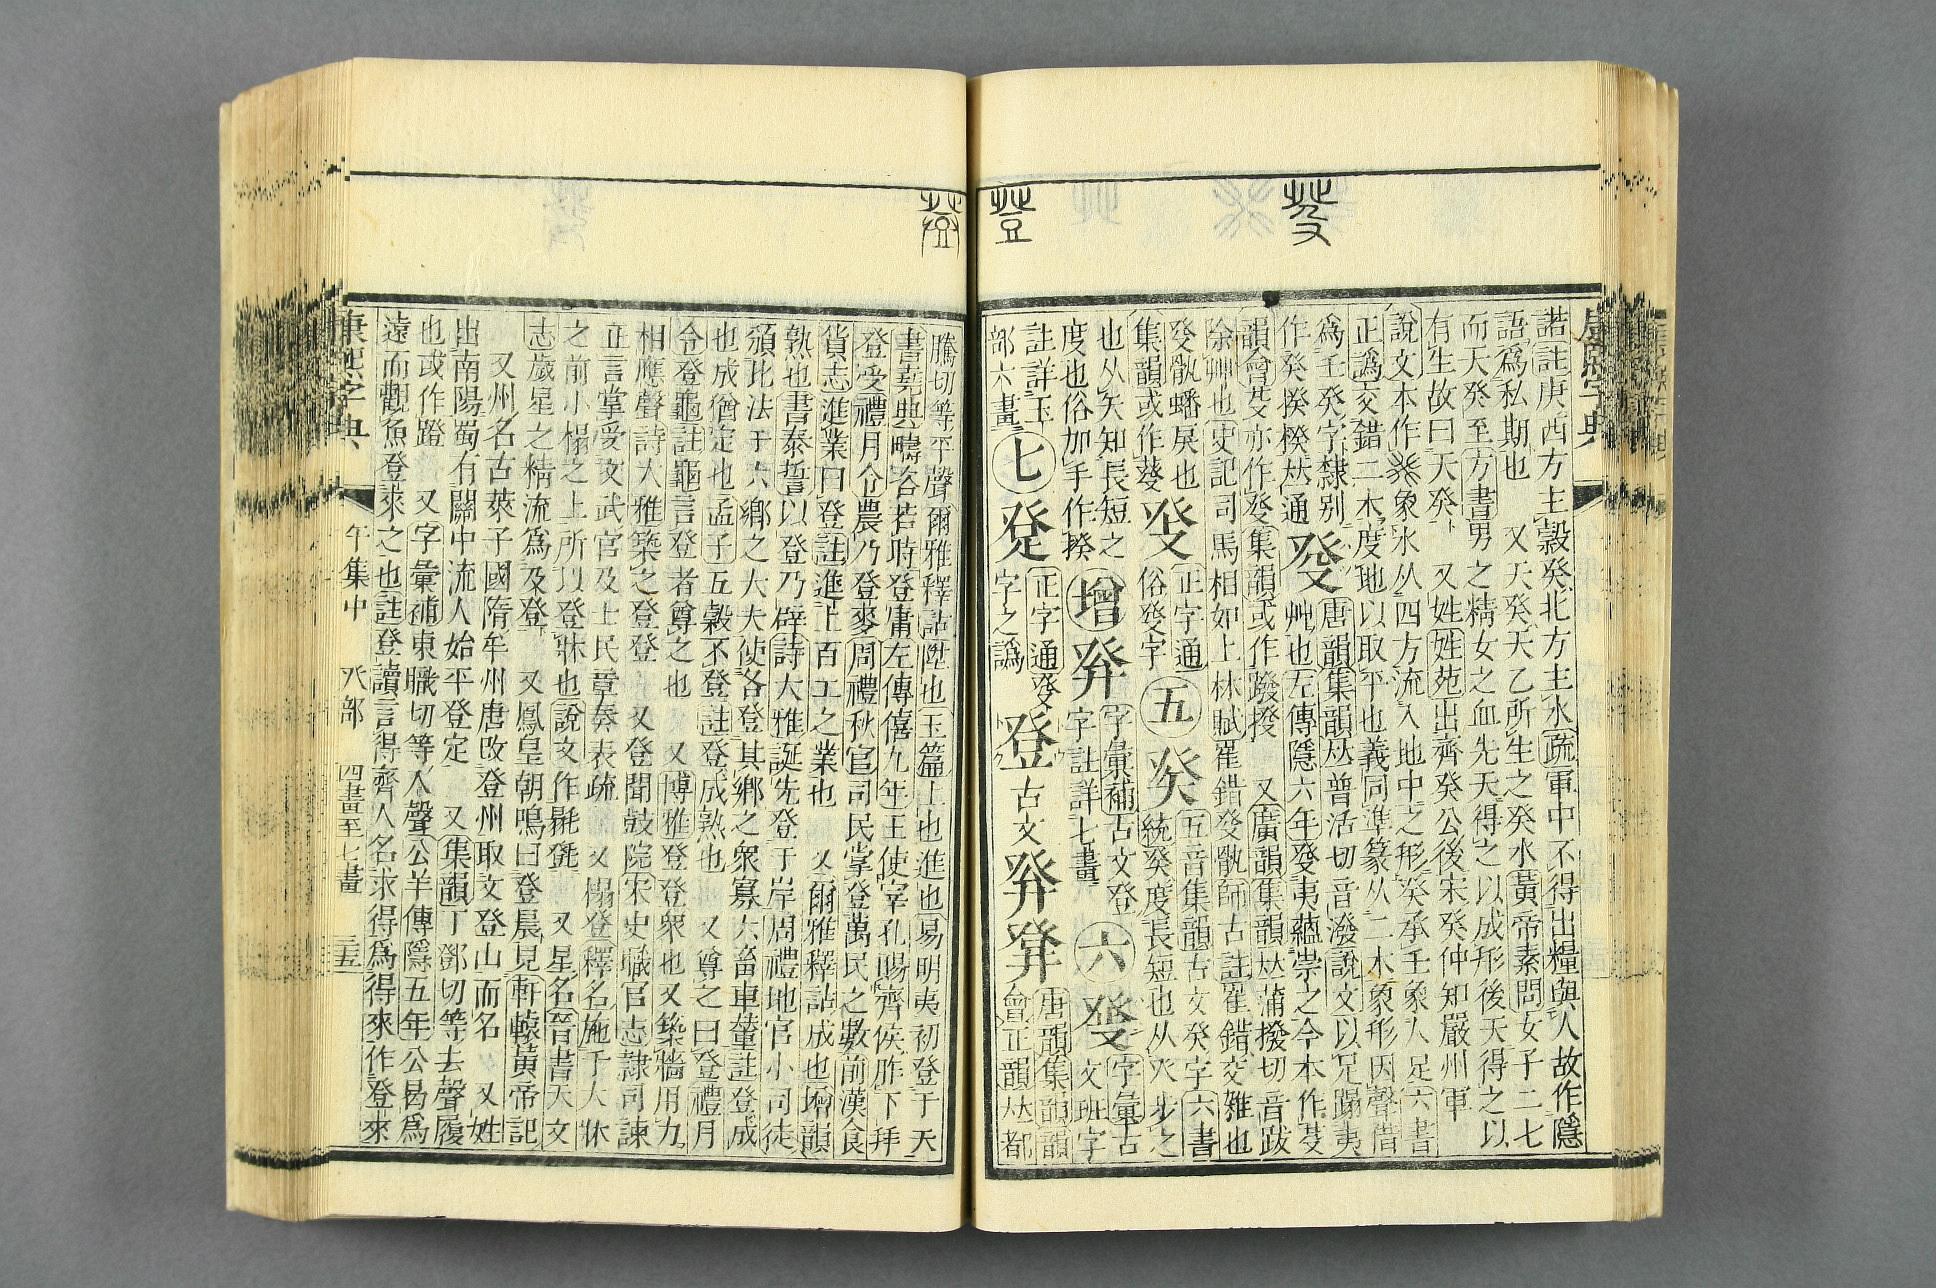 諾註庚西方主穀癸北方主水疏軍中不得出糧與人故作隱
語爲私期也 又天癸天乙所生之癸水黃帝素問女子二七
而天癸至方書男之精女之血先天得之以成形後天得之以
有生故曰天癸 又姓姓苑出齊癸公後宋癸仲知嚴州軍
說文本作𤼩象水从四方流入地中之形癸承壬象人足六書
正譌交錯二木度地以取平也義同準篆从二木象形因聲借
爲壬癸字隸別作癸揆楑𠀤通
癹
唐韻集韻𠀤普活切音潑說文以足蹋夷
艸也左傳隱六年癹夷蘊崇之今本作芟
韻會癹亦作發集韻或作蹳撥 又廣韻集韻𠀤蒲撥切音跋
除艸也史記司馬相如上林賦崔錯癹骫師古註崔錯交雑也
癹骫蟠戾也集韻或作蕟
正字通俗發字
五
癸
五音集韻古文癸字六書統癸度長短也从癶步之
也从矢知長短之度也俗加手作揆
增
字彙補古文登字註詳七畫
六
發
字彙古文班字註詳玉部六畫
七
正字通發字之譌
登
古文
唐韻集韻韻會正韻𠀤都
騰切等平聲爾雅釋詁陞也玉篇上也進也易明夷初登于天
書堯典疇咨若時登庸左傳僖九年王使宰孔賜齊侯胙下拜
登受禮月令農乃登麥周禮秋官司民掌登萬民之數前漢食
貨志進業曰登註進上百工之業也 又爾雅釋詁成也增韻
熟也書泰誓以登乃辟詩大雅誕先登于岸周禮地官小司徒
頒比法于六鄉之大夫使各登其鄉之衆寡六畜車輦註登成
也成猶定也孟子五穀不登註登成熟也 又尊之曰登禮月
令登龜註龜言登者尊之也 又博雅登登衆也又築牆用力
相應聲詩大雅築之登登 又登聞鼓院宋史職官志隷司諫
正言掌受文武官及士民章奏表疏 又榻登釋名施于大牀
之前小榻之上所以登牀也說文作毾㲪 又星名晉書天文
志歲星之精流爲及登 又鳳皇朝鳴曰登晨見軒轅黃帝記
又州名古萊子國隋牟州唐改登州取文登山而名 又姓
出南陽蜀有關中流人始平登定 又集韻丁鄧切等去聲履
也或作蹬 又字彙補東職切等入聲公羊傳隱五年公曷爲
遠而觀魚登來之也註登讀言得齊人名求得爲得來作登來
康熙字典
午集中
癶部
四畫至七畫
三五